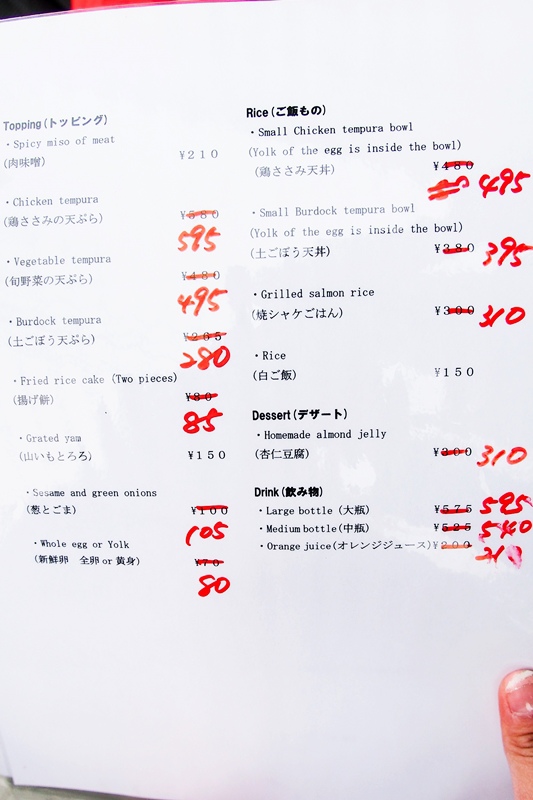 Topping(トッピング)
・Spicy miso of meat
(肉味噌) ¥210
・Chicken tempura
(鶏ささみの天ぷら) ¥580
595
・Vegetable tempura
(旬野菜の天ぷら) ¥480
495
・Burdock tempura
(土ごぼう天ぷら) ¥265
280
・Fried rice cake (Two pieces)
(揚げ餅) ¥80
85
・Grated yam
(山いもとろろ) ¥150
・Sesame and green onions
(葱とごま) ¥100
105
・Whole egg or Yolk
(新鮮卵 全卵 or 黄身) ¥70
80
Rice(ご飯もの)
・Small Chicken tempura bowl
(Yolk of the egg is inside the bowl)
(鶏ささみ天丼) ¥480
495
・Small Burdock tempura bowl
(Yolk of the egg is inside the bowl)
(土ごぼう天丼) ¥380 395
・Grilled salmon rice
(焼シャケごはん) ¥300 310
・Rice
(白ご飯) ¥150
Dessert(デザート)
・Homemade almond jelly
(杏仁豆腐) ¥300 310
Drink(飲み物)
・Large bottle(大瓶) ¥575 595
・Medium bottle(中瓶) ¥525 540
・Orange juice(オレンジジュース) ¥200